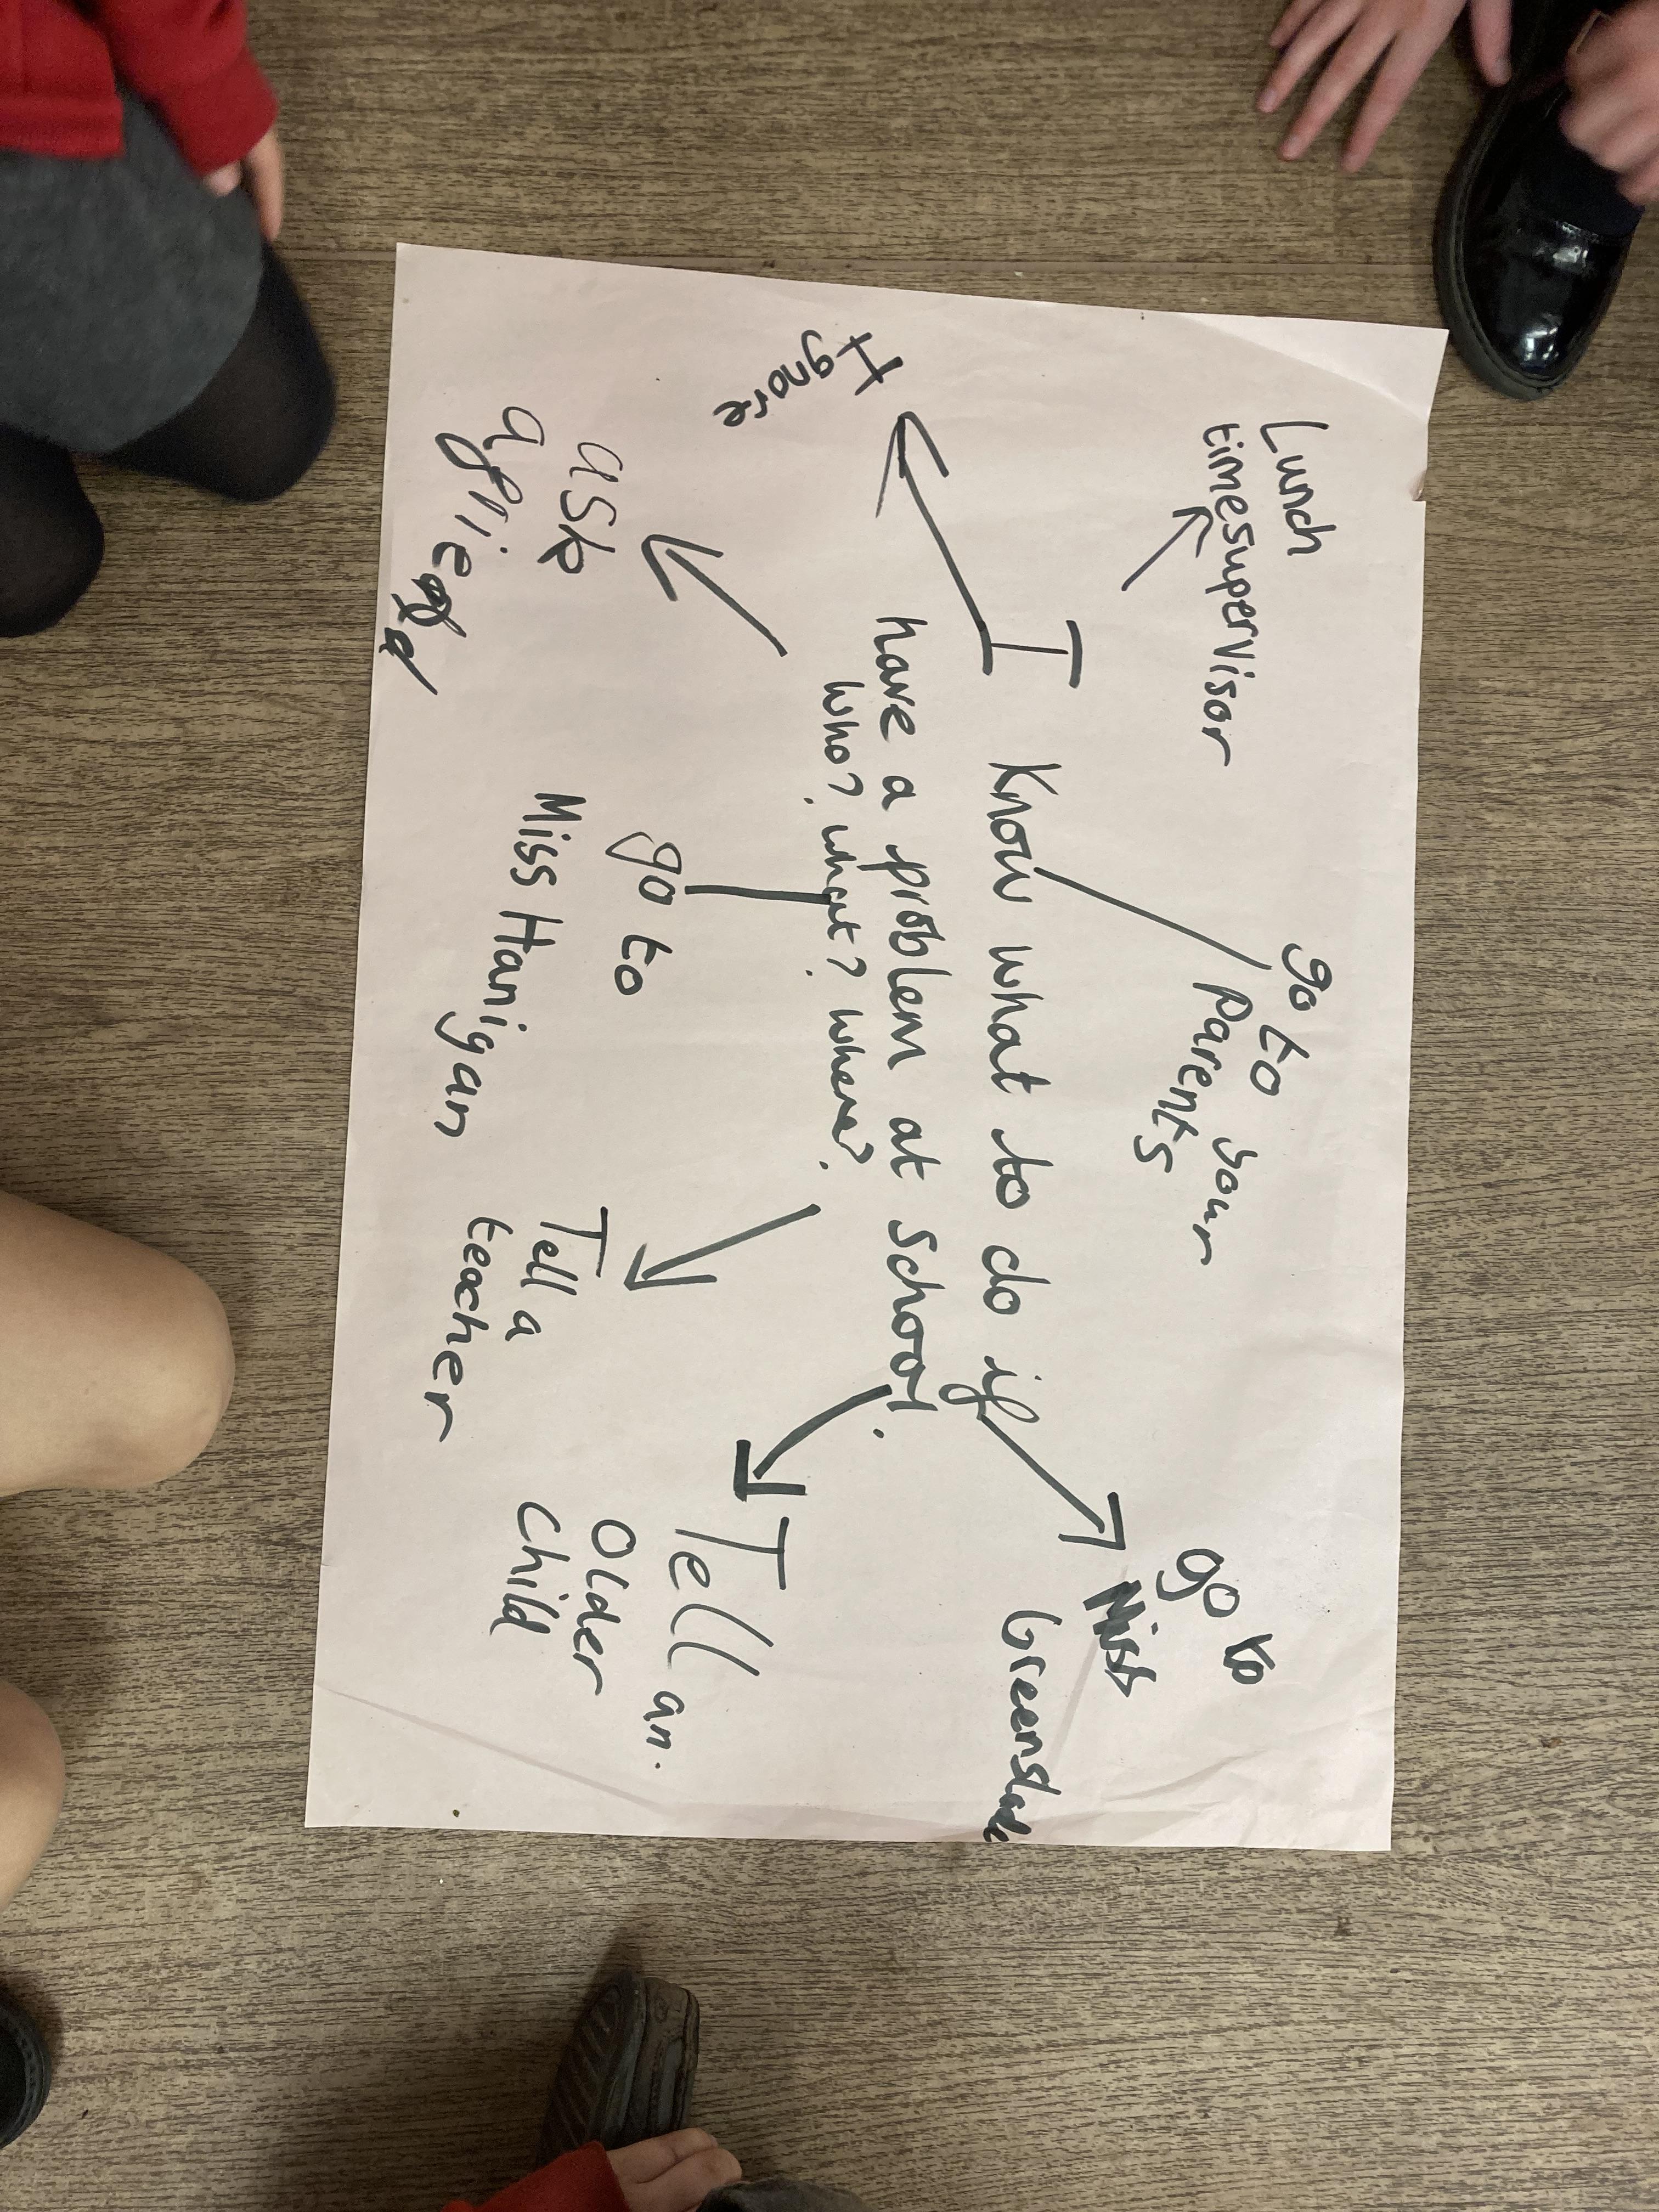 Lunch
timesupervisor
go to your
Parents
go to
Miss
Greenslade
Ignore
I Know what to do if
have a problem at school.
Who? what? where?
ask
a friend
go to
Miss Hanigan
Tell a
teacher
Tell an.
Older
Child